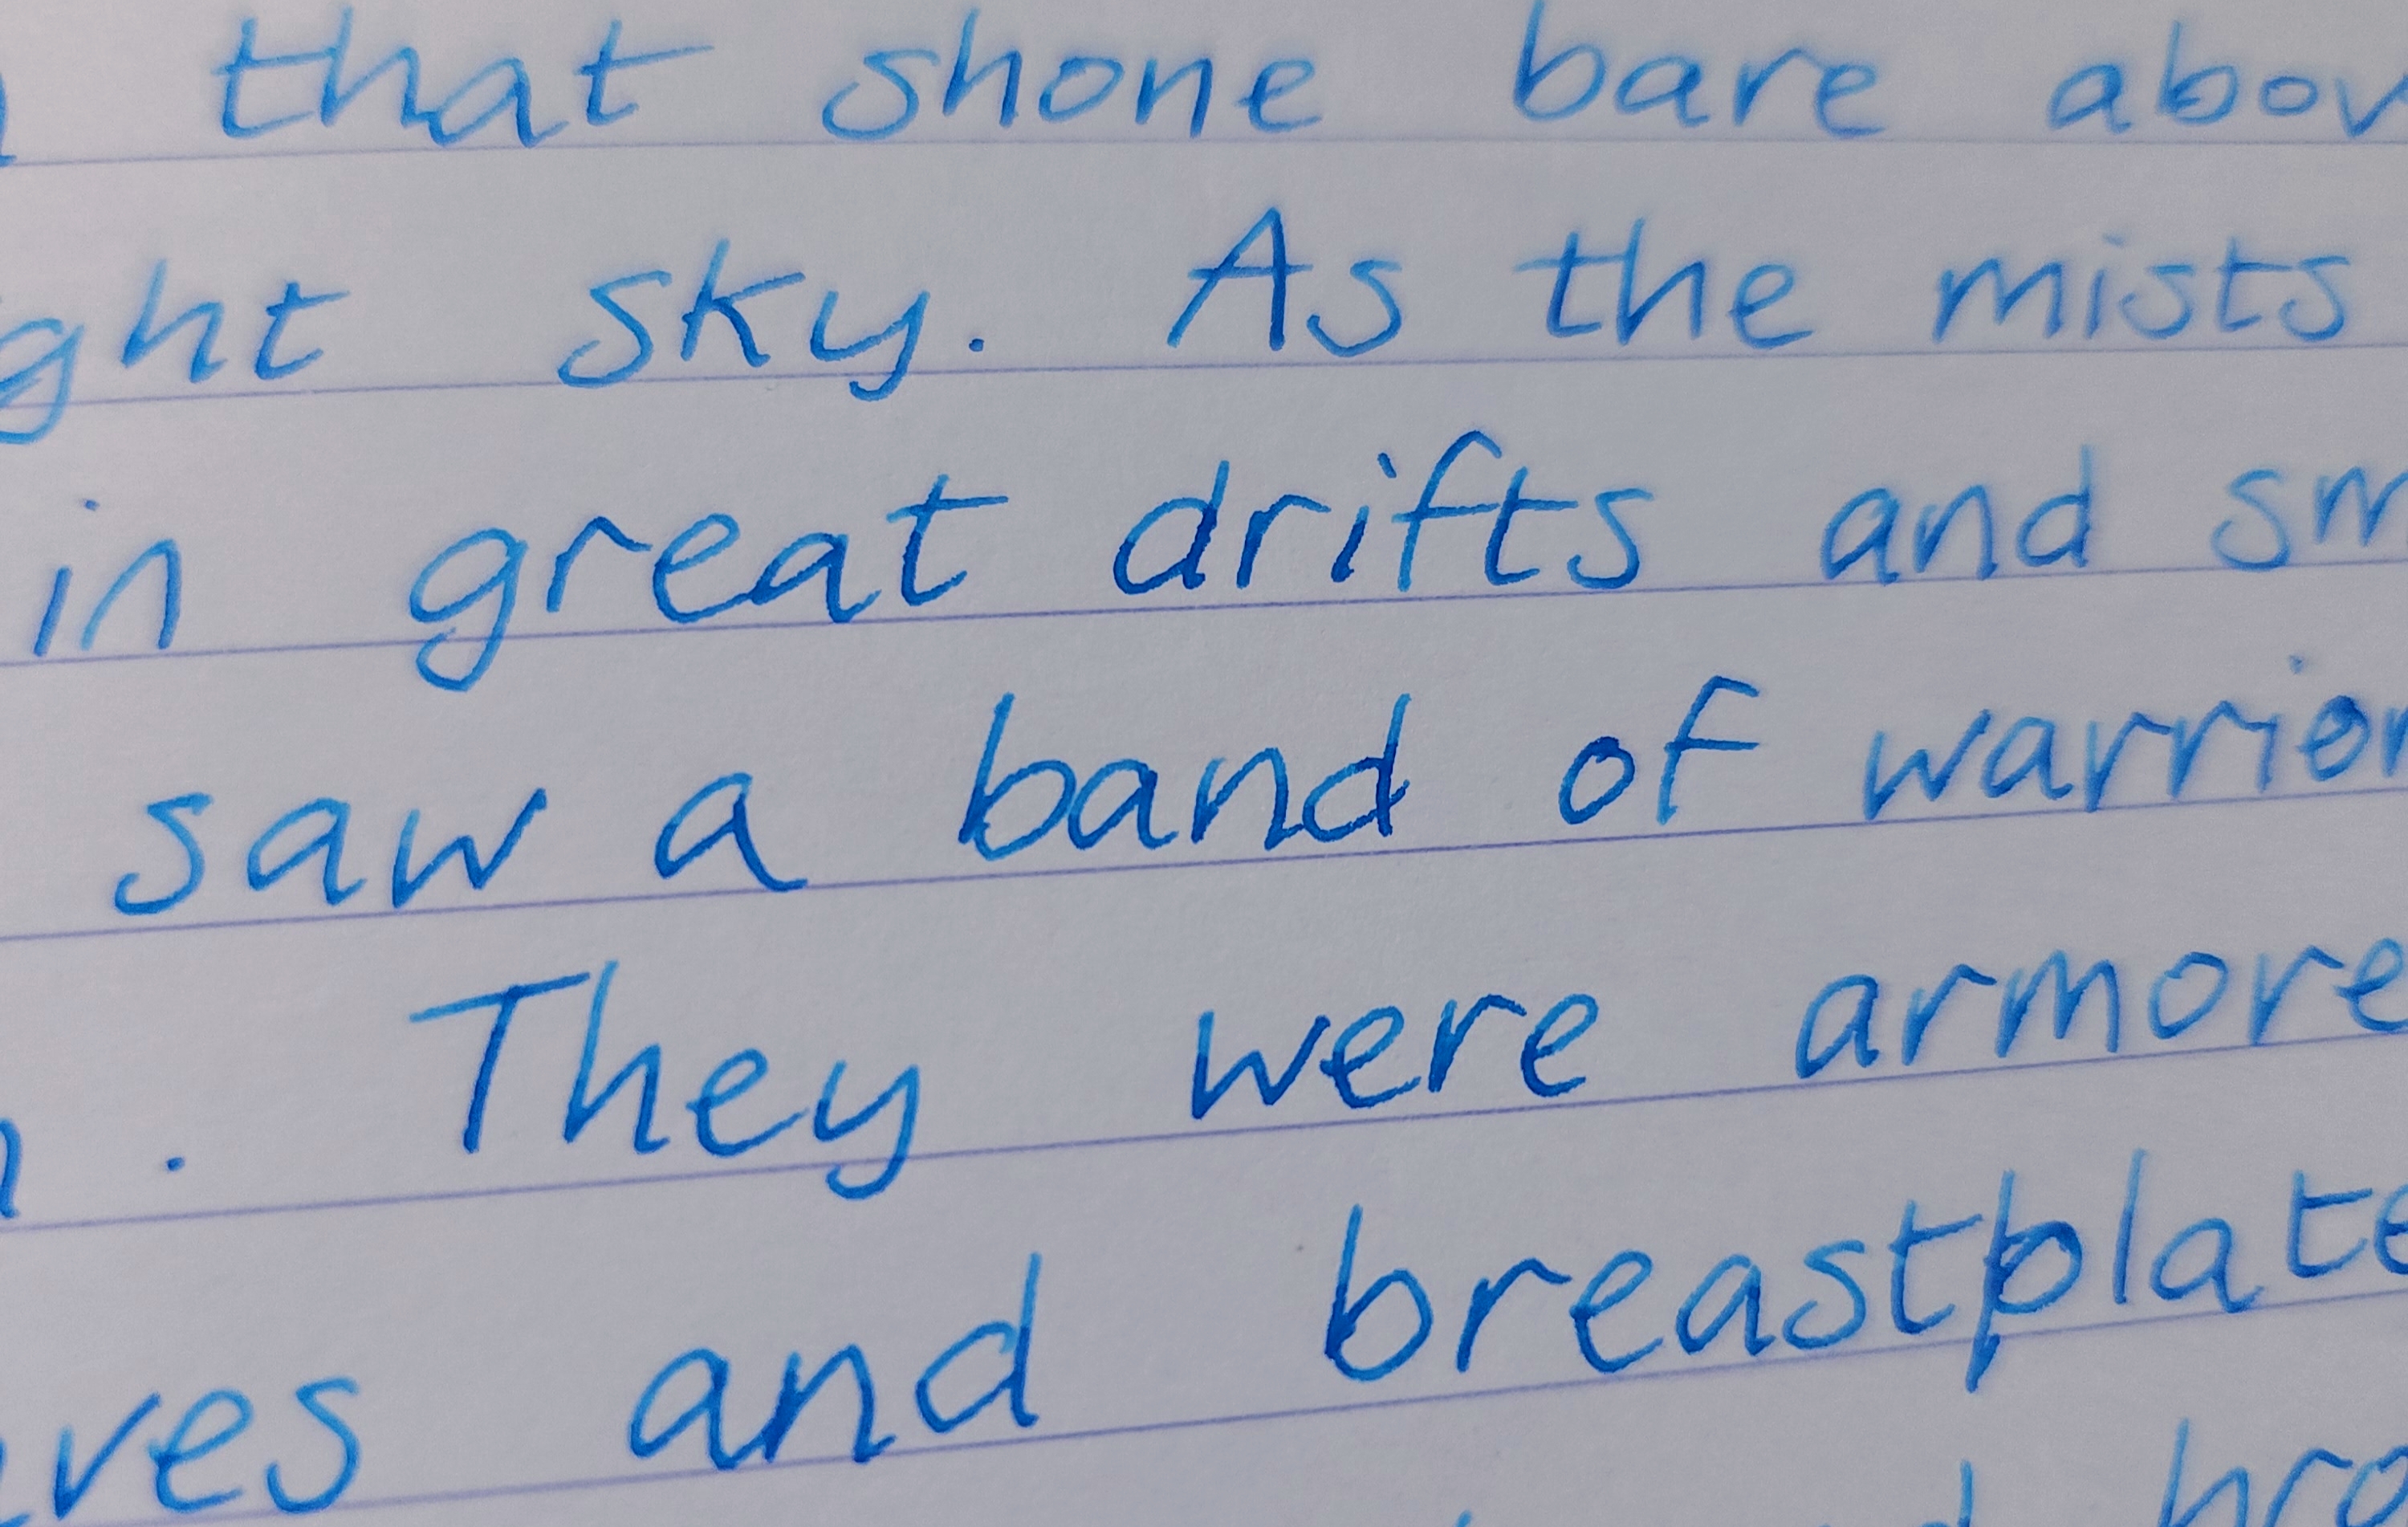 that shone bare abov
ght sky. As the mists
in great drifts and sm
saw a band of warrior
. They were armore
ves and breastplate